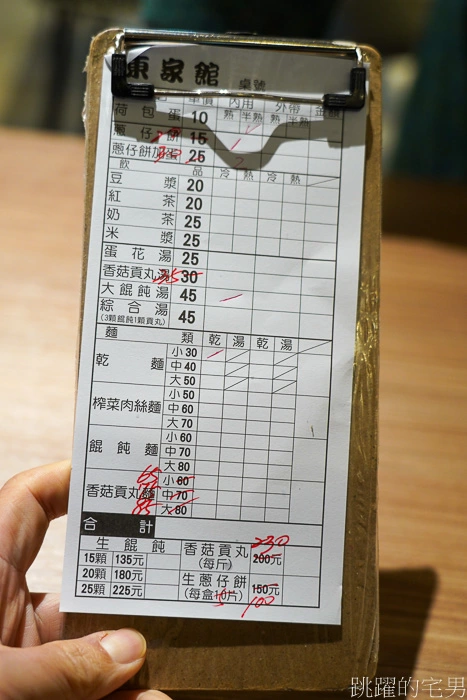 東家館 桌號
單價 內用 外帶 金額
熟 半熟 熟 半熟
荷包蛋 10
蔥仔餅 15
蔥仔餅加蛋 25
飲 品 冷 熱 冷 熱
豆漿 20
紅茶 20
奶茶 25
米漿 25
蛋花湯 25
香菇貢丸湯 30 35
大餛飩湯 45
綜合湯 45
(3顆餛飩1顆貢丸)
麵 類 乾 湯 乾 湯
乾麵 小30
中40
大50
榨菜肉絲麵 小50
中60
大70
餛飩麵 小60
中70
大80
香菇貢丸麵 小60 65
中70
大80 85
合計
生餛飩 香菇貢丸 (每斤) 200元 230
15顆 135元
20顆 180元 生蔥仔餅 150元
25顆 225元 (每盒10片) 100
跳躍的宅男